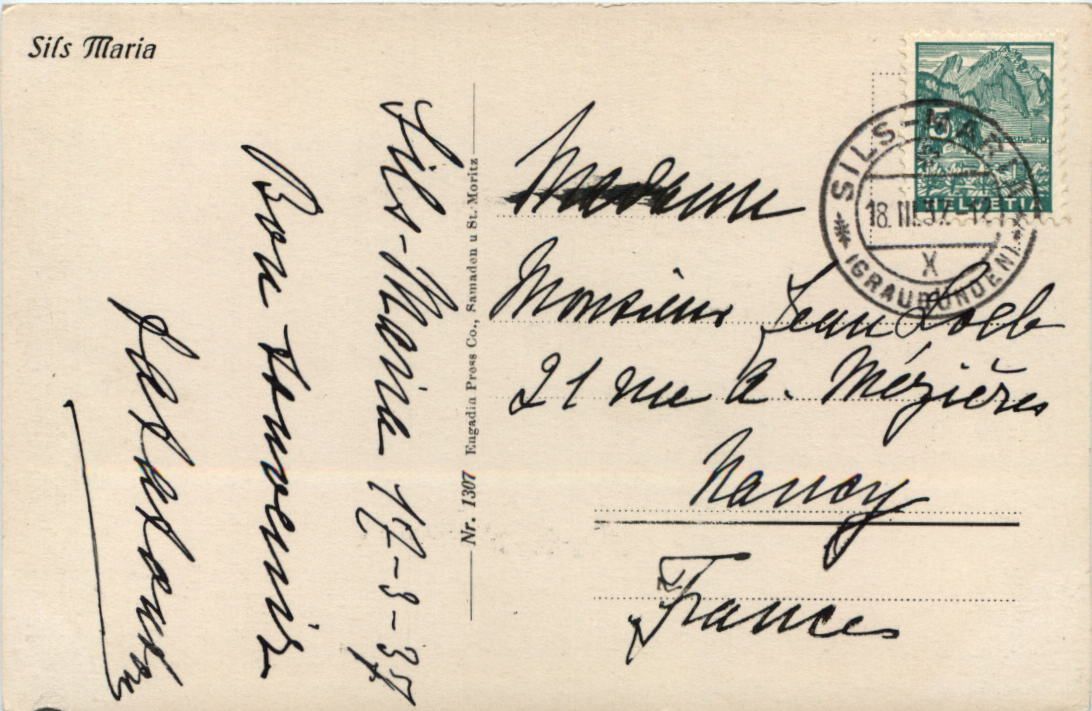 Sils Maria
Sils-Maria 17-3-37
Bon souvenir
Nr. 1307 Engadin Press Co., Samaden u St. Moritz
Madame
Monsieur Jean Loeb
21 rue A. Mézières
Nancy
France
5
HELVETIA
SILS-MARIA
18.III.37.-12
X
(GRAUBÜNDEN)